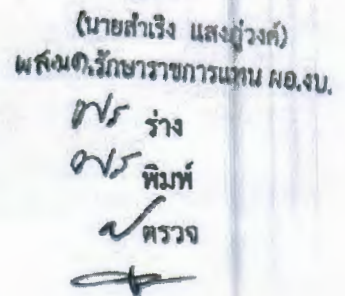 (นายสำเริง แสงภู่วงค์)
ผสงมต.รักษาราชการแทน ผอ.งบ.
ร่าง
พิมพ์
ตรวจ